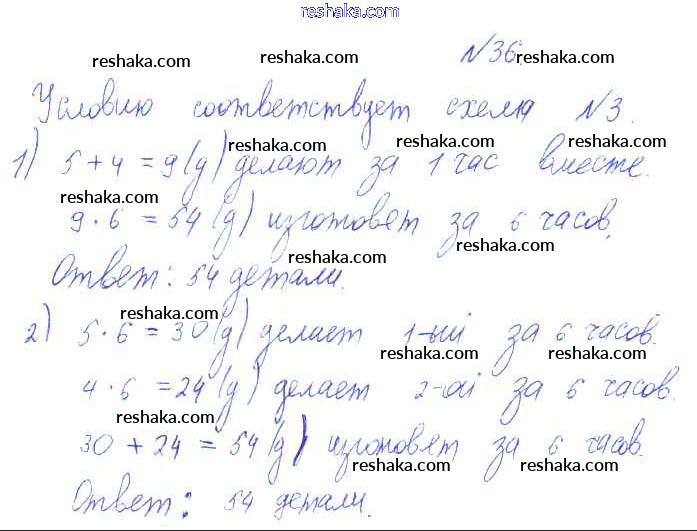 reshaka.com
№36.
reshaka.com reshaka.com
Условию соответствует схема №3.
reshaka.com reshaka.com
1) 5+4=9(д) делают за 1 час вместе.
reshaka.com reshaka.com
9·6=54(д) изготовят за 6 часов.
reshaka.com reshaka.com
Ответ: 54 детали.
reshaka.com
2) 5·6=30(д) делает 1-ый за 6 часов.
reshaka.com reshaka.com
4·6=24(д) делает 2-ой за 6 часов.
reshaka.com reshaka.com
30+24=54(д) изготовят за 6 часов.
reshaka.com reshaka.com
Ответ: 54 детали.
reshaka.com